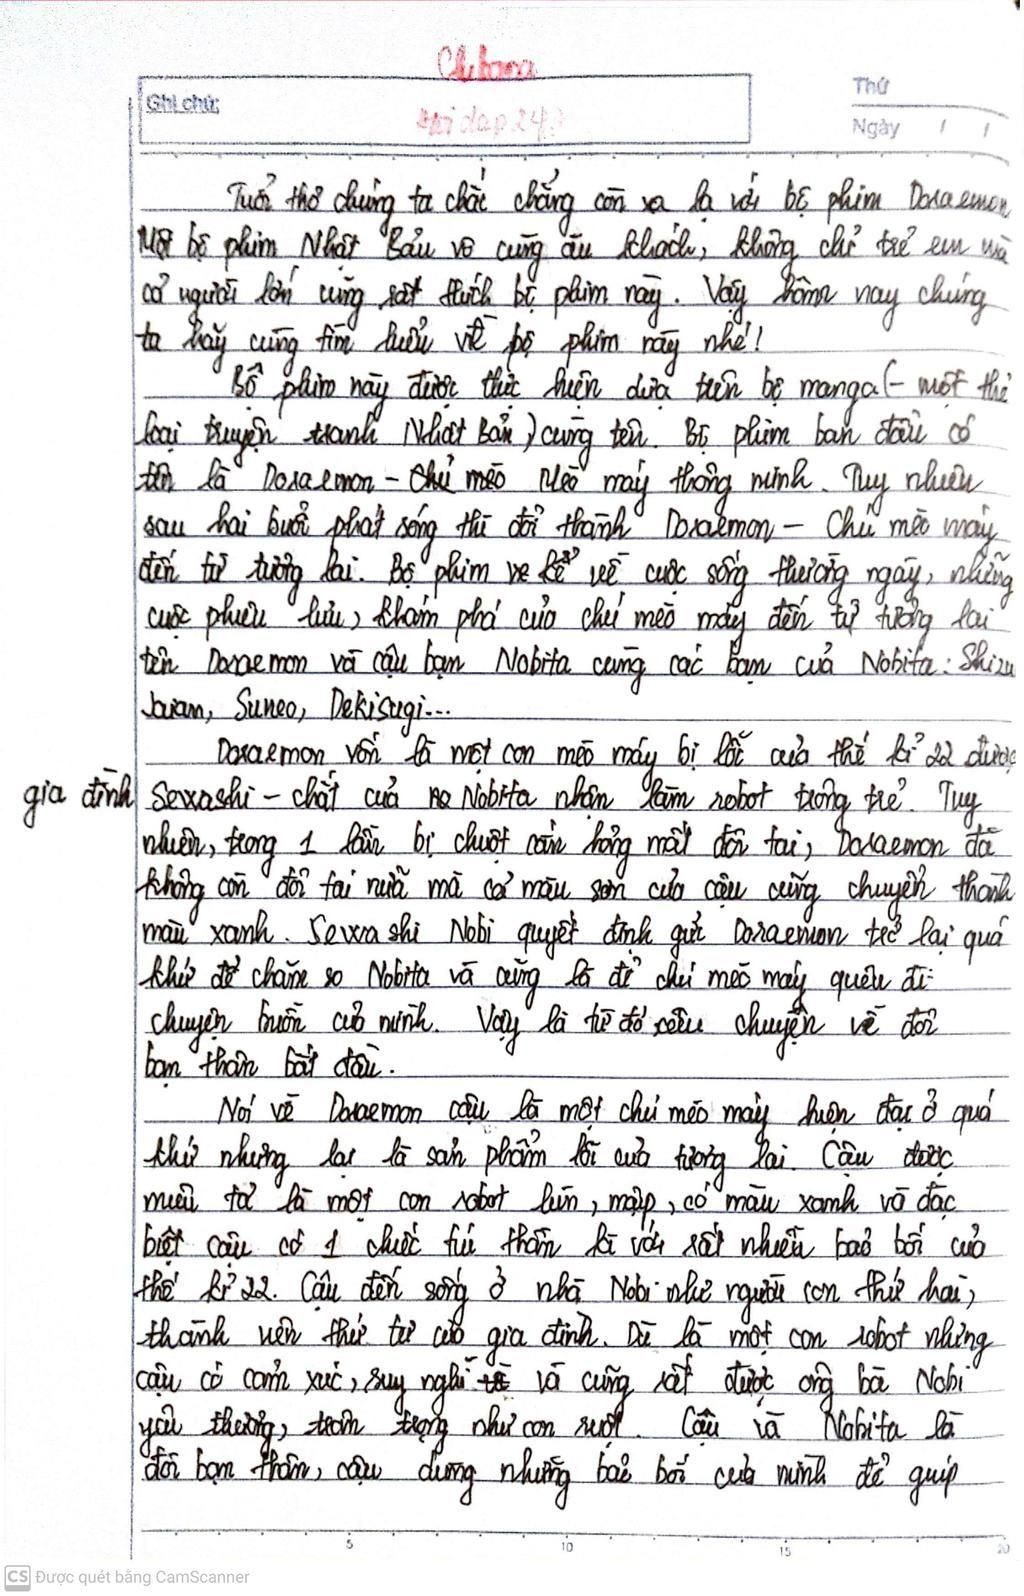 Ghi chú:
hoidap247
Thứ
Ngày / /
Tuổi thơ chúng ta chắc chẳng còn xa lạ với bộ phim Doraemon
Một bộ phim Nhật Bản vô cùng ăn khách, không chỉ trẻ em mà
cả người lớn cũng rất thích bộ phim này. Vậy hôm nay chúng
ta hãy cùng tìm hiểu về bộ phim này nhé!
Bộ phim này được thực hiện dựa trên bộ manga (- một thể
loại truyện tranh Nhật Bản) cùng tên. Bộ phim ban đầu có
tên là Doraemon - Chú mèo Mèo máy thông minh. Tuy nhiên
sau hai buổi phát sóng thì đổi thành Doraemon - Chú mèo máy
đến từ tương lai. Bộ phim ve kể về cuộc sống thường ngày, những
cuộc phiêu lưu, khám phá của chú mèo máy đến từ tương lai
tên Doraemon và cậu bạn Nobita cùng các bạn của Nobita: Shizu
Jaian, Suneo, Dekisugi...
Doraemon vốn là một con mèo máy bị lỗi của thế kỉ 22 được
gia đình Sewashi - chắt của no Nobita nhận làm robot trông trẻ. Tuy
nhiên, trong 1 lần bị chuột cắn hỏng mất đôi tai, Doraemon đã
không còn đôi tai nữa mà cả màu sơn của cậu cũng chuyển thành
màu xanh. Sewashi Nobi quyết định gửi Doraemon trở lại quá
khứ để chăm so Nobita và cũng là để chú mèo máy quên đi
chuyện buồn của mình. Vậy là từ đó câu chuyện về đôi
bạn thân bắt đầu.
Nói về Doraemon cậu là một chú mèo máy hiện đại ở quá
khứ nhưng lại là sản phẩm lỗi của tương lai. Cậu được
miêu tả là một con robot lùn, mập, có màu xanh và đặc
biệt cậu có 1 chiếc túi thần kì với rất nhiều bảo bối của
thế kỉ 22. Cậu đến sống ở nhà Nobi như người con thứ hai,
thành viên thứ tư của gia đình. Dù là một con robot nhưng
cậu có cảm xúc, suy nghĩ và cũng rất được ông bà Nobi
yêu thương, trân trọng như con ruột. Cậu và Nobita là
đôi bạn thân, cậu dùng những bảo bối của mình để giúp
5 10 15 20
CS Được quét bằng CamScanner